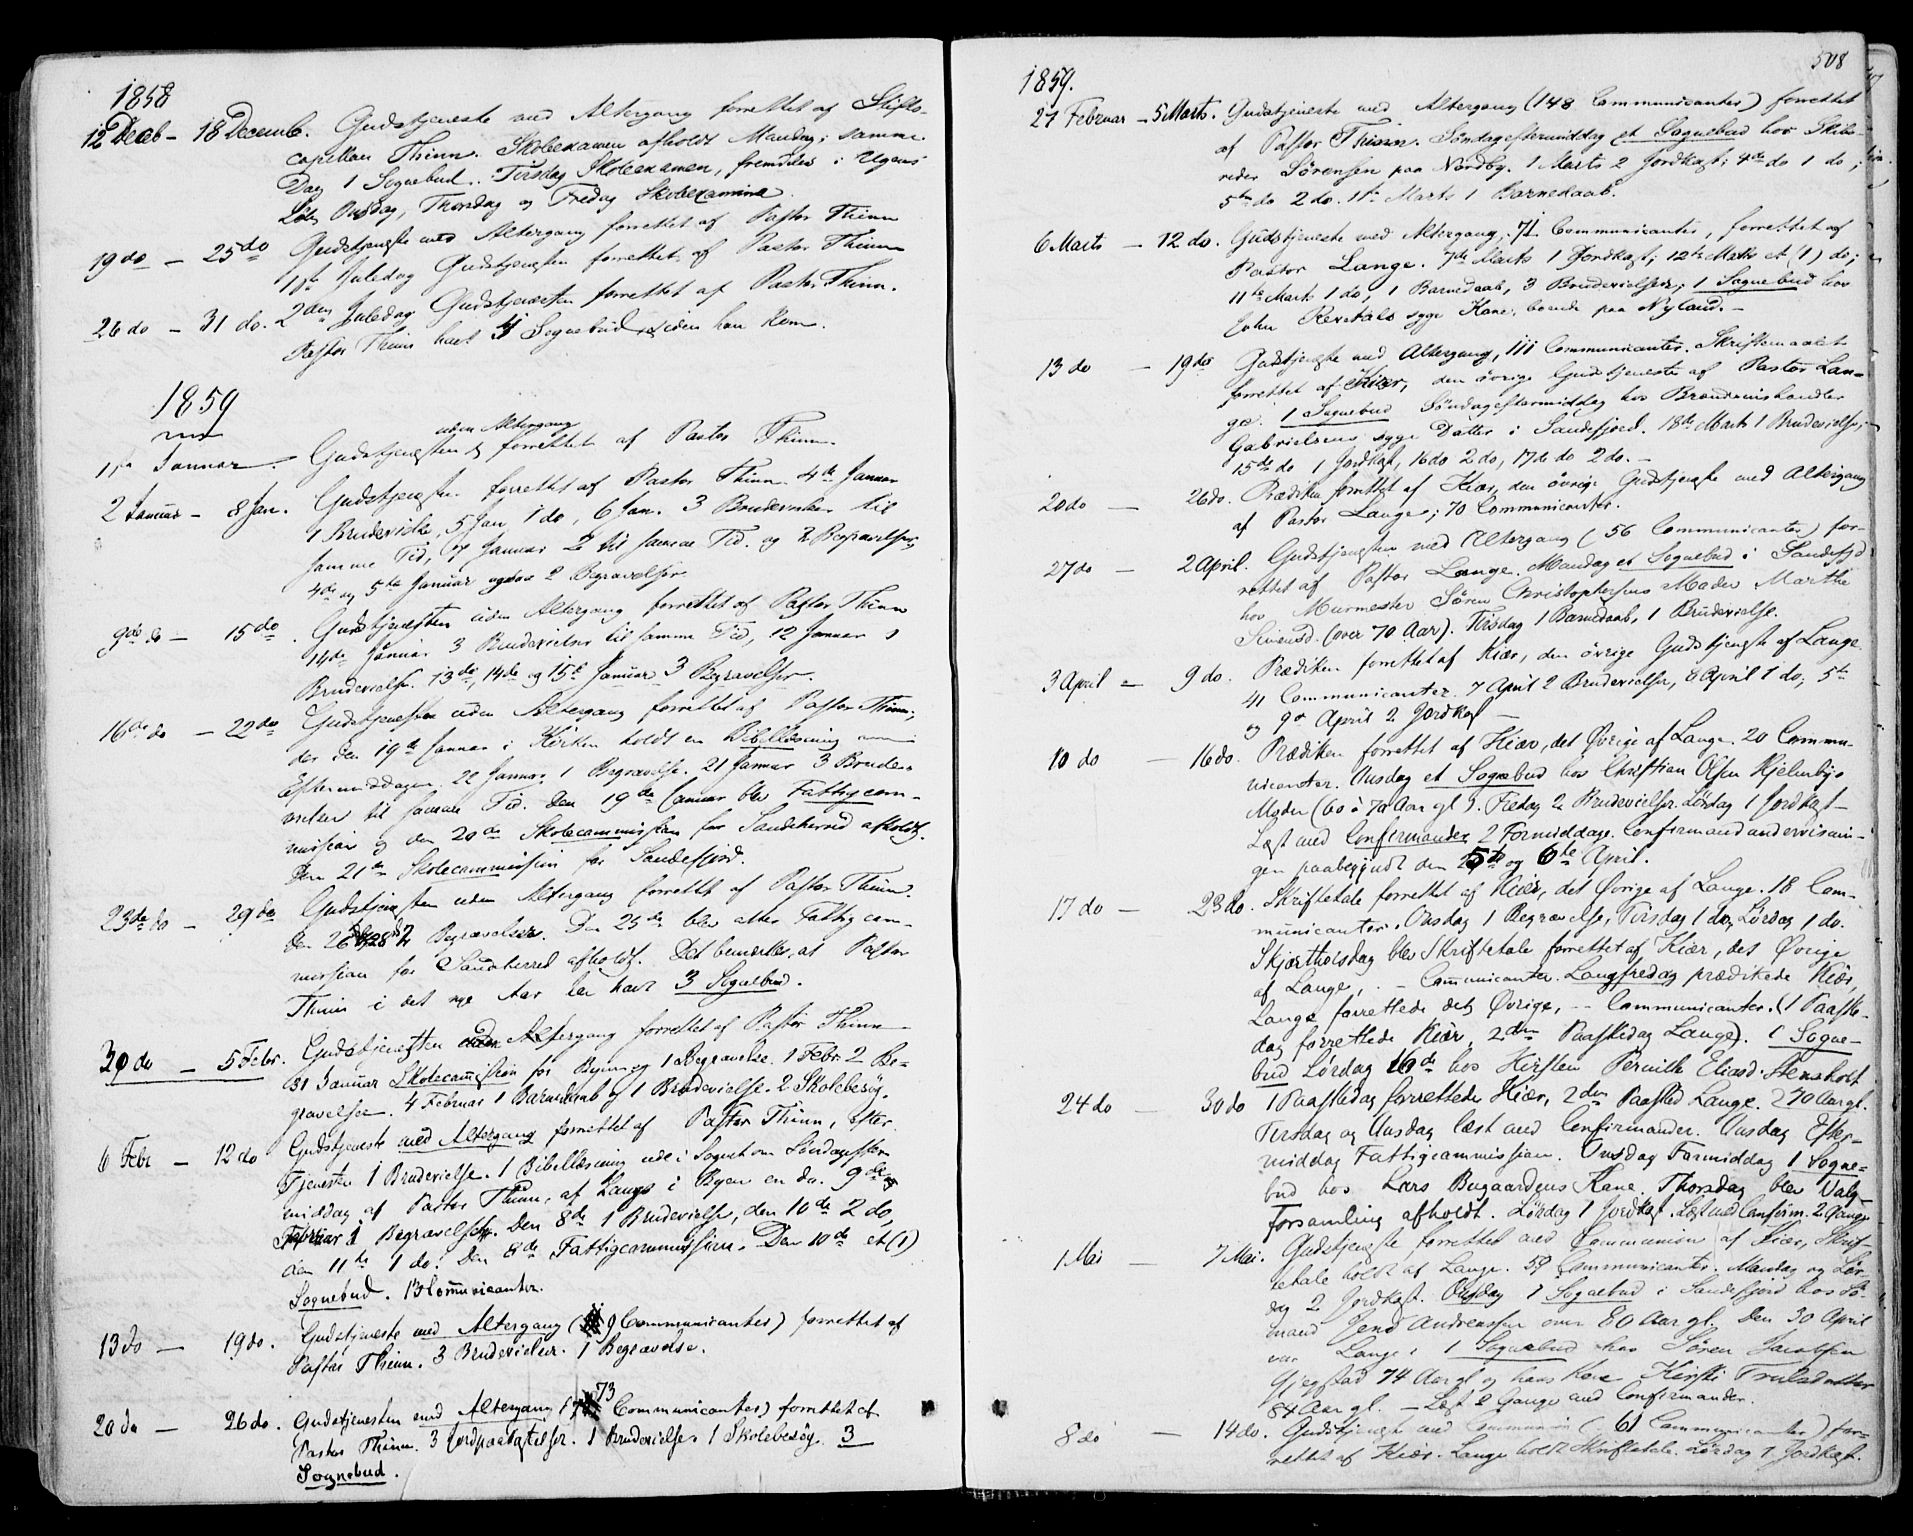 1858
12 Decb - 18 Decemb. Gudstjeneste med Altergang forrettet af Stifts-
capellan Thinn. Skolexamen afholdt Mandag; samme
Dag 1 Sognebud. Tirsdag Skoleexamen, fremdeles i Ugens
Løb, Onsdag, Thorsdag og Fredag Skolexamina.
19 do - 25 do Gudstjeneste med Altergang forrettet af Pastor Thinn
1ste Juledag Gudstjenesten forrettet af Pastor Thinn
26 do - 31 do. 2den Juledag Gudstjenesten forrettet af Pastor Thinn.
Pastor Thinn havt 4 Sognebud, siden han kom.
1859
uden Altergang
1ste Januar. Gudstjenesten forrettet af Pastor Thinn.
2 Januar - 8 Jan. Gudstjenesten forrettet af Pastor Thinn. 4de Januar
1 Brudevielse, 5 Jan 1 do, 6 Jan. 3 Brudevielser til
samme Tid, 7 Januar 2 til samme Tid. og 2 Begravelser,
4de og 5te Januar ogsaa 2 Begravelser
9de do - 15 do. Gudstjenesten uden Altergang forrettet af Pastor Thinn
14de Januar 3 Brudevielser til samme Tid, 12 Januar 1
Brudevielse. 13de, 14de og 15de Januar 3 Begravelser.
16de do - 22 do Gudstjenesten uden Altergang forrettet af Pastor Thinn,
der den 19de Januar i Kirken holdt en Bibellæsning om
Eftermiddagen. 22 Januar 1 Begravelse. 21 Januar 3 Brude-
vielser til samme Tid. Den 19de Januar blev Fattigcom-
mission og den 20de Skolecommission for Sandeherred afholdt.
Den 21de Skolecommission for Sandefjord.
23de do - 29 do Gudstjenesten uden Altergang forrettet af Pastor Thinn.
Den 26 28 2 Begravelser. Den 25de blev atter Fattigcom-
mission for Sandherred afholdt. Det bemærkes, at Pastor
Thinn i det nye Aar har havt 3 Sognebud.
30 do - 5 Febr. Gudstjenesten uden Altergang forrettet af Pastor Thinn
31 Januar Skolecommission for Byen og 1 Begravelse. 1 Febr. 2 Be-
gravelser. 4 Februar 1 Barnedaab og 1 Brudevielse. 2 Skolebesøg.
6 Febr - 12 do Gudstjeneste med Altergang forrettet af Pastor Thinn, efter
Tjenesten 1 Brudevielse. 1 Bibellæsning ude i Sognet om Søndagefter-
middag af Pastor Thinn, af Lange i Byen en do. 9de
Februar 1 Begravelse. Den 8de 1 Brudevielse, den 10de 2 do,
den 11te 1 do. Den 8de Fattigcommission. Den 10de et (1)
Sognebud. 13 Communicanter.
13 do - 19 do. Gudstjeneste med Altergang (9 Communicanter) forrettet af
Pastor Thinn. 3 Brudevielser. 1 Begravelse.
20 do - 26 do. Gudstjenesten med Altergang (73 Communicanter) forrettet af
Pastor Thinn. 3 Jordpaakastelser. 1 Brudevielse. 1 Skolebesøg. 3
Sognebud.
508
1859.
27 Februar - 5 Marts. Gudstjeneste med Altergang (148 Communicanter) forrettet
af Pastor Thinn. Søndageftermiddag et Sognebud hos Skibs-
reder Sørensen paa Nordby. 1 Marts 2 Jordkast; 4de do 1 do;
5te do 2 do. 1ste Marts 1 Barnedaab.
6 Marts - 12 do. Gudstjeneste med Altergang, 71 Communicanter, forrettet af
Pastor Lange. 7de Marts 1 Jordkast; 12te Marts et (1) do;
11te Marts 1 do, 1 Barnedaab, 3 Brudevielser; 1 Sognebud hos
John Revetals syge Kone, boende paa Nyland. -
13 do - 19 do Gudstjeneste med Altergang, 111 Communicanter. Skriftemaalet
forrettet af Kiær, den øvrige Gudstjeneste af Pastor Lan-
ge. 1 Sognebud Søndageftermiddag hos Brændevinshandler
Gabrielsens syge Datter i Sandefjord. 18de Marts 1 Brudevielse;
15de do 1 Jordkast, 16 do 2 do, 17de do 2 do. -
20 do - 26 do. Prædiken forrettet af Kiær, den øvrige Gudstjeneste med Altergang
af Pastor Lange; 70 Communicanter.
27 do - 2 April. Gudstjenesten med Altergang (56 Communicanter) for-
rettet af Pastor Lange. Mandag et Sognebud i Sandefjd
hos Murmester Søren Christophersens Moder Marthe
Simensd. (over 70 Aar). Tirsdag 1 Barnedaab, 1 Brudevielse.
3 April - 9 do. Prædiken forrettet af Kiær, den øvrige Gudstjeneste af Lange
41 Communicanter. 7 April 2 Brudevielser, 8 April 1 do; 5te
og 9de April 2 Jordkast -
10 do - 16 do. Prædiken forrettet af Kiær, det Øvrige af Lange. 20 Commu-
nicanter. Onsdag et Sognebud hos Christian Olsen Kjelnby's
Moder (60 à 70 Aar gl). Fredag 2 Brudevielser. Lørdag 1 Jordkast -
Læst med Confirmander 2 Formiddage. Confirmandundervisnin-
gen paabegyndt den 5te og 6te April.
17 do - 23 do. Skriftetale forrettet af Kiær, det Øvrige af Lange. 18 Com-
municanter. Onsdag 1 Begravelse, Tirsdag 1 do, Lørdag 1 do.
Skjærthorsdag blev Skriftetale forrettet af Kiær, det Øvrige
af Lange, - Communicanter. Langfredag prædikede Kiær,
Lange forrettede det Øvrige, -- Communicanter. (1 Paaske-
dag forrettede Kiær, 2den Paaskedag Lange). 1 Sogne-
bud Lørdag 16de hos Kirsten Pernille Eliasd. Stensholt
24 do - 30 do 1 Paaskedag forrettede Kiær, 2den Paasked Lange. 70 Aar gl.
Tirsdag og Onsdag læst med Confirmander. Onsdag Efter-
middag Fattigcommission. Onsdag Formiddag 1 Sogne-
bud hos Lars Bugaardens Kone. Thorsdag blev Valg-
forsamling afholdt. Lørdag 1 Jordkast. Læst med Confirm. 2 Gange
1 Mai - 7 Mai. Gudstjeneste forrettet med Communion af Kiær, Skrif-
tetale holdt af Lange. 59 Communicanter. Mandag og Lør-
dag 2 Jordkast. Onsdag 1 Sognebud i Sandefjord hos Sø-
mand Jens Andreassen over 80 Aar gl. Den 30 April
var Lange i 1 Sognebud hos Søren Jacobsen
Gjegstad 74 Aar gl og hans Kone Kirsti Trulsdatter
84 Aar gl. - Læst 2 Gange med Confirmander.
8 do - 14 do. Gudstjeneste med Communion (61 Communicanter) for-
rettet af Kiær. Lange holdt Skriftetale. Lørdag 1 Jordkast.